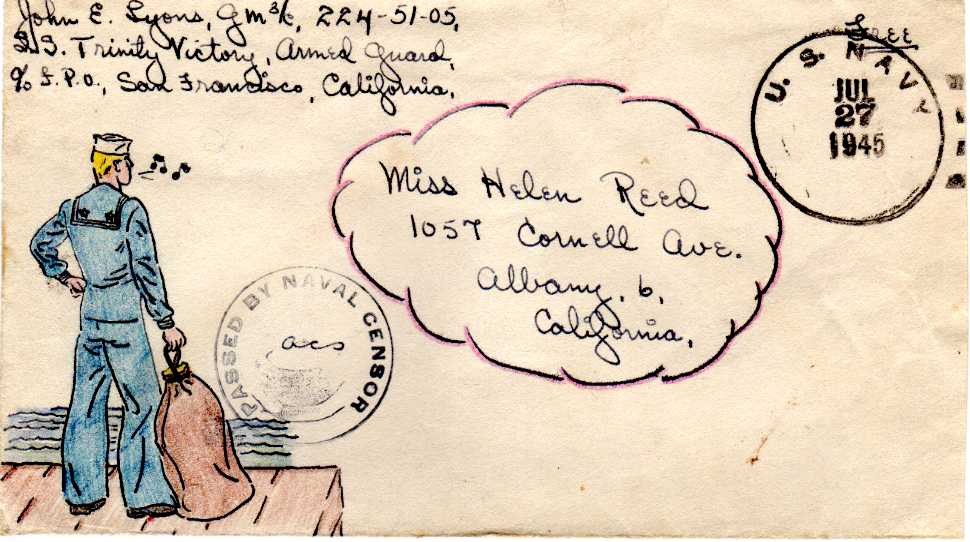 John E. Lyons, GM 3/c, 224-51-05,
S.S. Trinity Victory, Armed Guard,
c/o F.P.O., San Francisco, California,
Free
U.S. NAVY
JUL
27
1945
Miss Helen Reed
1057 Cornell Ave.
Albany, 6,
California,
PASSED BY NAVAL CENSOR
acs